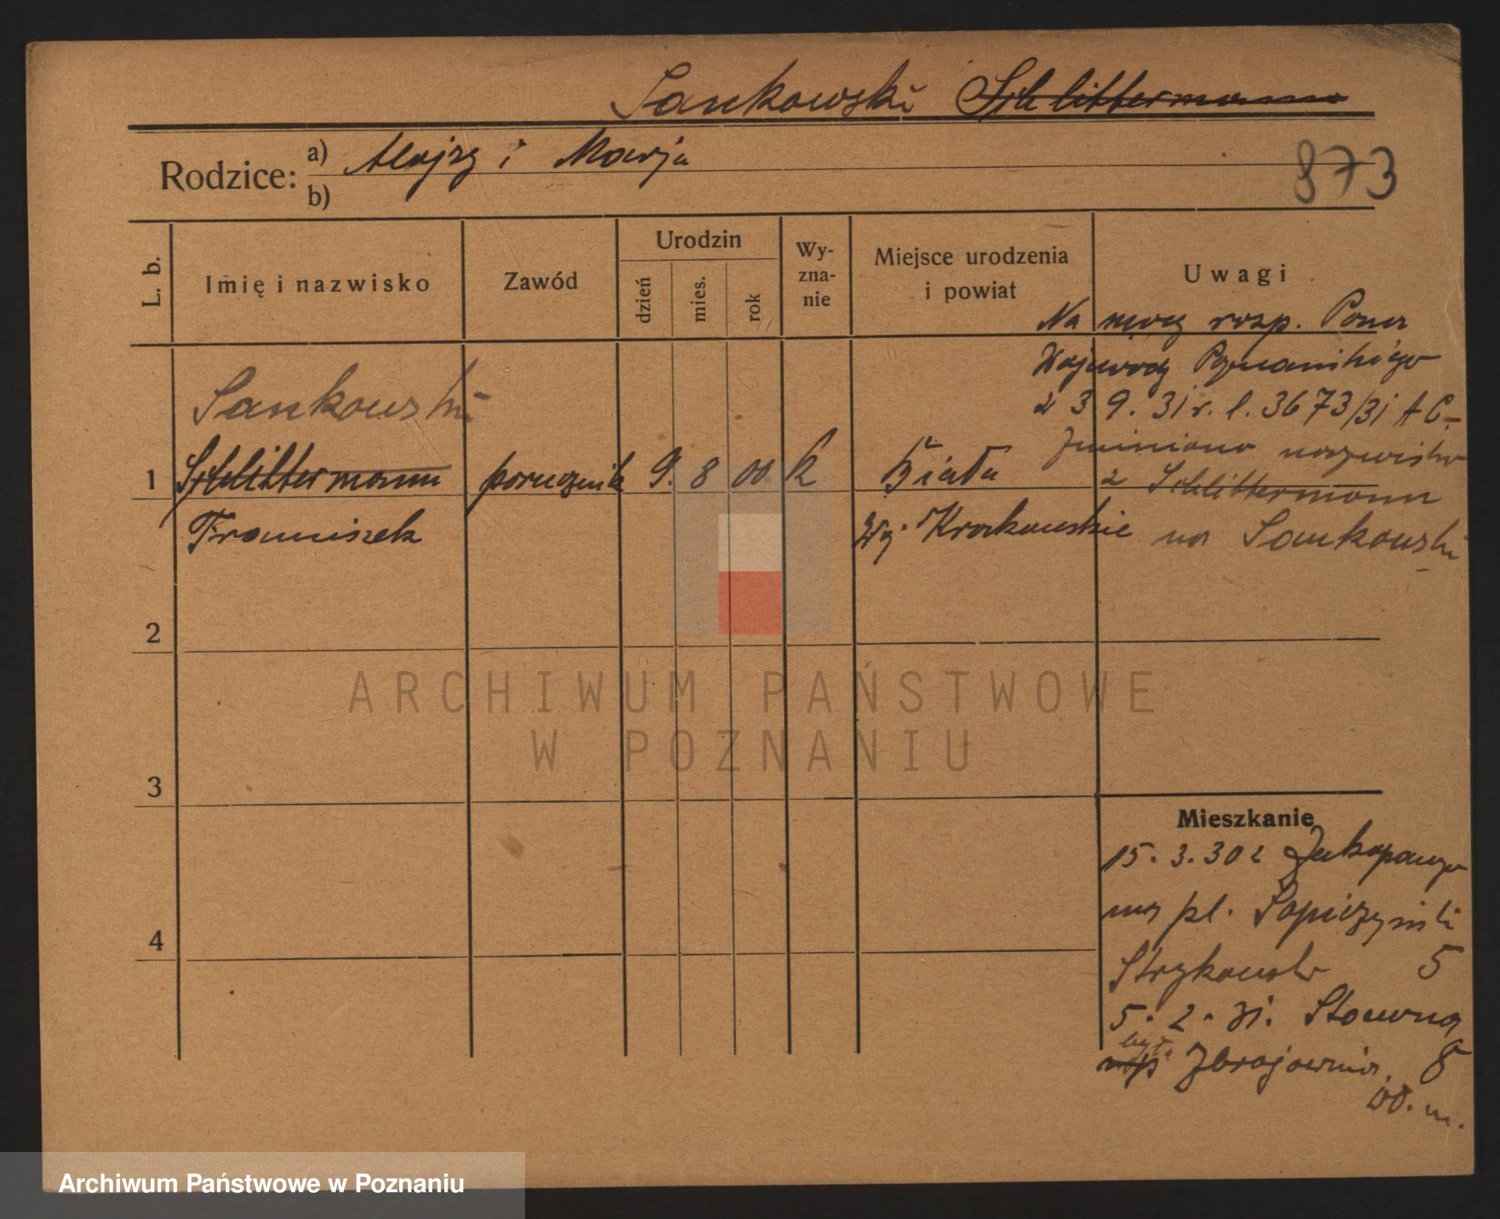 Sankowski Schlittermann
Rodzice: a) Alojzy i Marja
b)
873
L. b.
Imię i nazwisko
Zawód
Urodzin
dzień
mies.
rok
Wy-
zna-
nie
Miejsce urodzenia
i powiat
Uwagi
Na mocy rozp. Pana
Wojewody Poznańskiego
z 3 9. 31 r. l. 3673/31 A C.
zmieniono nazwisko
z Schlittermann
na Sankowski
Sankowski
1 Schlittermann porucznik 9. 8 00 k Biała
Franciszek Krakowskie
2
3
4
Mieszkanie
15. 3. 30 z Zakopanego
na pl. Sapieżyński
5
5. 2. 31. Stawna
Zbrojownia. 8
ARCHIWUM PAŃSTWOWE
W POZNANIU
Archiwum Państwowe w Poznaniu